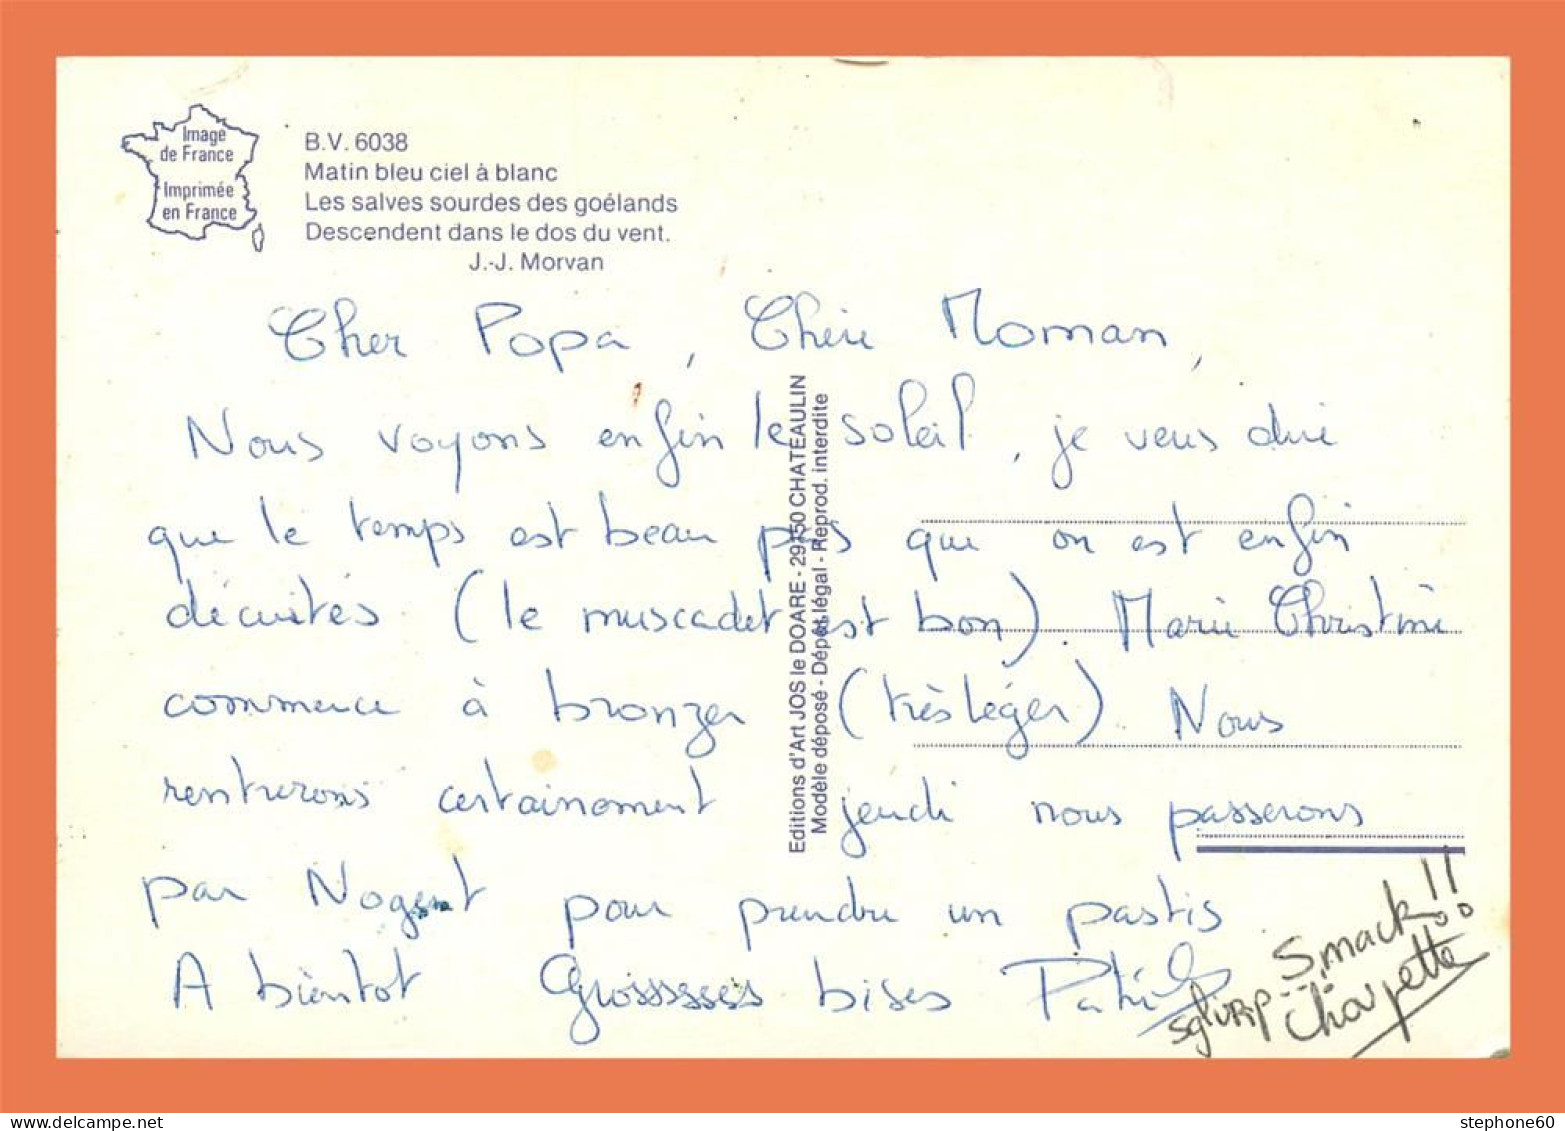 Image
de France
Imprimée
en France
B.V. 6038
Matin bleu ciel à blanc
Les salves sourdes des goélands
Descendent dans le dos du vent.
J.-J. Morvan
Cher Popa, Chère Moman,
Nous voyons enfin le soleil, je veus dire
que le temps est beau pas que on est enfin
décuités (le muscadet est bon). Marie Christine
commence à bronzer (très léger). Nous
rentrerons certainement jeudi nous passerons
par Nogent pour prendre un pastis
A bientot Grosssses bises Patrick
Smack!!
sglurp
Editions d'Art JOS le DOARE - 29150 CHATEAULIN
Modèle déposé - Dépôt légal - Reprod. interdite
stephone60